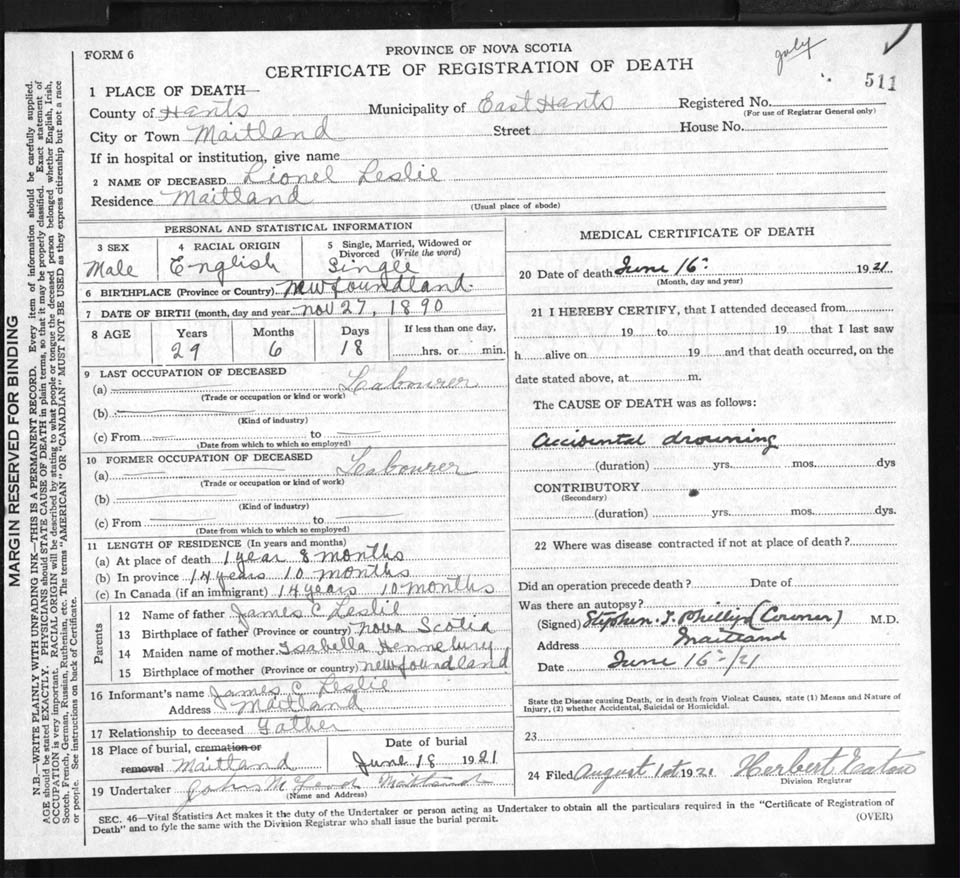 FORM 6
PROVINCE OF NOVA SCOTIA
July
CERTIFICATE OF REGISTRATION OF DEATH
511
1 PLACE OF DEATH—
County of Hants Municipality of East Hants Registered No.
(For use of Registrar General only)
City or Town Maitland Street House No.
If in hospital or institution, give name
2 NAME OF DECEASED Lionel Leslie
Residence Maitland
(Usual place of abode)
PERSONAL AND STATISTICAL INFORMATION
3 SEX 4 RACIAL ORIGIN 5 Single, Married, Widowed or
Divorced (Write the word)
Male English Single
6 BIRTHPLACE (Province or Country) Newfoundland
7 DATE OF BIRTH (month, day and year Nov 27, 1890
8 AGE Years Months Days If less than one day,
29 6 18 hrs. or min.
9 LAST OCCUPATION OF DECEASED
(a) Labourer
(Trade or occupation or kind or work)
(b)
(Kind of industry)
(c) From to
(Date from which to which so employed)
10 FORMER OCCUPATION OF DECEASED
(a) Labourer
(Trade or occupation or kind of work)
(b)
(Kind of industry)
(c) From to
(Date from which to which so employed)
11 LENGTH OF RESIDENCE (In years and months)
(a) At place of death 1 year 8 months
(b) In province 14 years 10 months
(c) In Canada (if an immigrant) 14 years 10 months
Parents
12 Name of father James C Leslie
13 Birthplace of father (Province or country) Nova Scotia
14 Maiden name of mother Isabella Hennebury
15 Birthplace of mother (Province or country) Newfoundland
16 Informant's name James C Leslie
Address Maitland
17 Relationship to deceased Father
18 Place of burial, cremation or Date of burial
removal Maitland June 18 1921
19 Undertaker John M Maitland
(Name and Address)
MEDICAL CERTIFICATE OF DEATH
20 Date of death June 16 1921
(Month, day and year)
21 I HEREBY CERTIFY, that I attended deceased from
19 to 19 that I last saw
h alive on 19 and that death occurred, on the
date stated above, at m.
The CAUSE OF DEATH was as follows:
Accidental drowning
(duration) yrs. mos. dys
CONTRIBUTORY
(Secondary)
(duration) yrs. mos. dys.
22 Where was disease contracted if not at place of death?
Did an operation precede death? Date of
Was there an autopsy?
(Signed) Stephen. (Coroner) M.D.
Address Maitland
Date June 16 /21
State the Disease causing Death, or in death from Violeat Causes, state (1) Means and Nature of
Injury, (2) whether Accidental, Suicidal or Homicidal.
23
24 Filed August 1st 1921 Herbert Eaton
Division Registrar
SEC. 46—Vital Statistics Act makes it the duty of the Undertaker or person acting as Undertaker to obtain all the particulars required in the "Certificate of Registration of
Death" and to fyle the same with the Division Registrar who shall issue the burial permit.
(OVER)
MARGIN RESERVED FOR BINDING
N.B.—WRITE PLAINLY WITH UNFADING INK—THIS IS A PERMANENT RECORD. Every item of information should be carefully supplied.
AGE should be stated EXACTLY. PHYSICIANS should STATE CAUSE OF DEATH in plain terms, so that it may be properly classified. Exact statement of
OCCUPATION is very important. RACIAL ORIGIN will be described by stating to what people or tongue the deceased person belonged whether English, Irish,
Scotch, French, German, Russian, Ruthenian, etc. The terms "AMERICAN" OR "CANADIAN" MUST NOT BE USED as they express citizenship but not a race
or people. See instructions on back of Certificate.